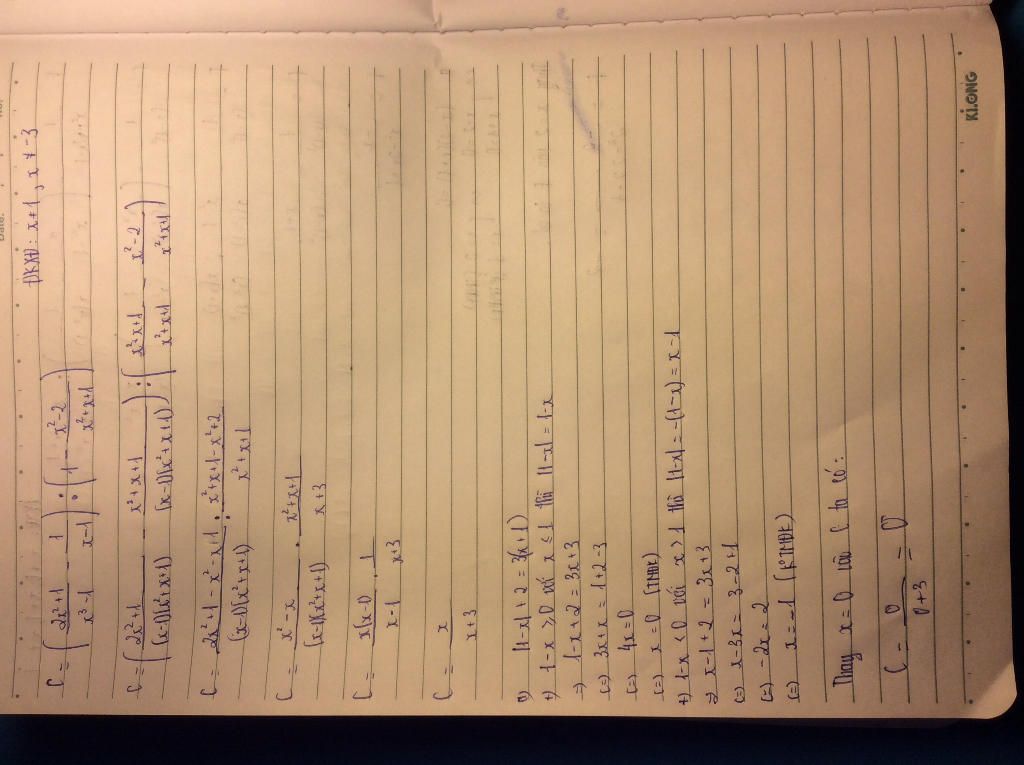 Date:
No.
ĐKXĐ: x ≠ 1, x ≠ -3
C = ( (2x²+1)/(x³-1) - 1/(x-1) ) : ( 1 - (x²-2)/(x²+x+1) )
C = ( (2x²+1)/((x-1)(x²+x+1)) - (x²+x+1)/((x-1)(x²+x+1)) ) : ( (x²+x+1)/(x²+x+1) - (x²-2)/(x²+x+1) )
C = (2x²+1-x²-x+1)/((x-1)(x²+x+1)) : (x²+x+1-x²+2)/(x²+x+1)
C = (x²-x)/((x-1)(x²+x+1)) . (x²+x+1)/(x+3)
C = x(x-1)/(x-1) . 1/(x+3)
C = x/(x+3)
|1-x| + 2 = 3(x+1)
+) 1-x ≥ 0 với x ≤ 1 thì |1-x| = 1-x
=) 1-x+2 = 3x+3
(=) 3x+x = 1+2-3
(=) 4x=0
(=) x=0 (TMĐK)
+) 1-x < 0 với x > 1 thì |1-x| = -(1-x) = x-1
=> x-1+2 = 3x+3
(=) x-3x = 3-2+1
(=) -2x=2
(=) x=-1 (KTMĐK)
Thay x=0 vào C ta có:
C = 0/(0+3) = 0
KLONG